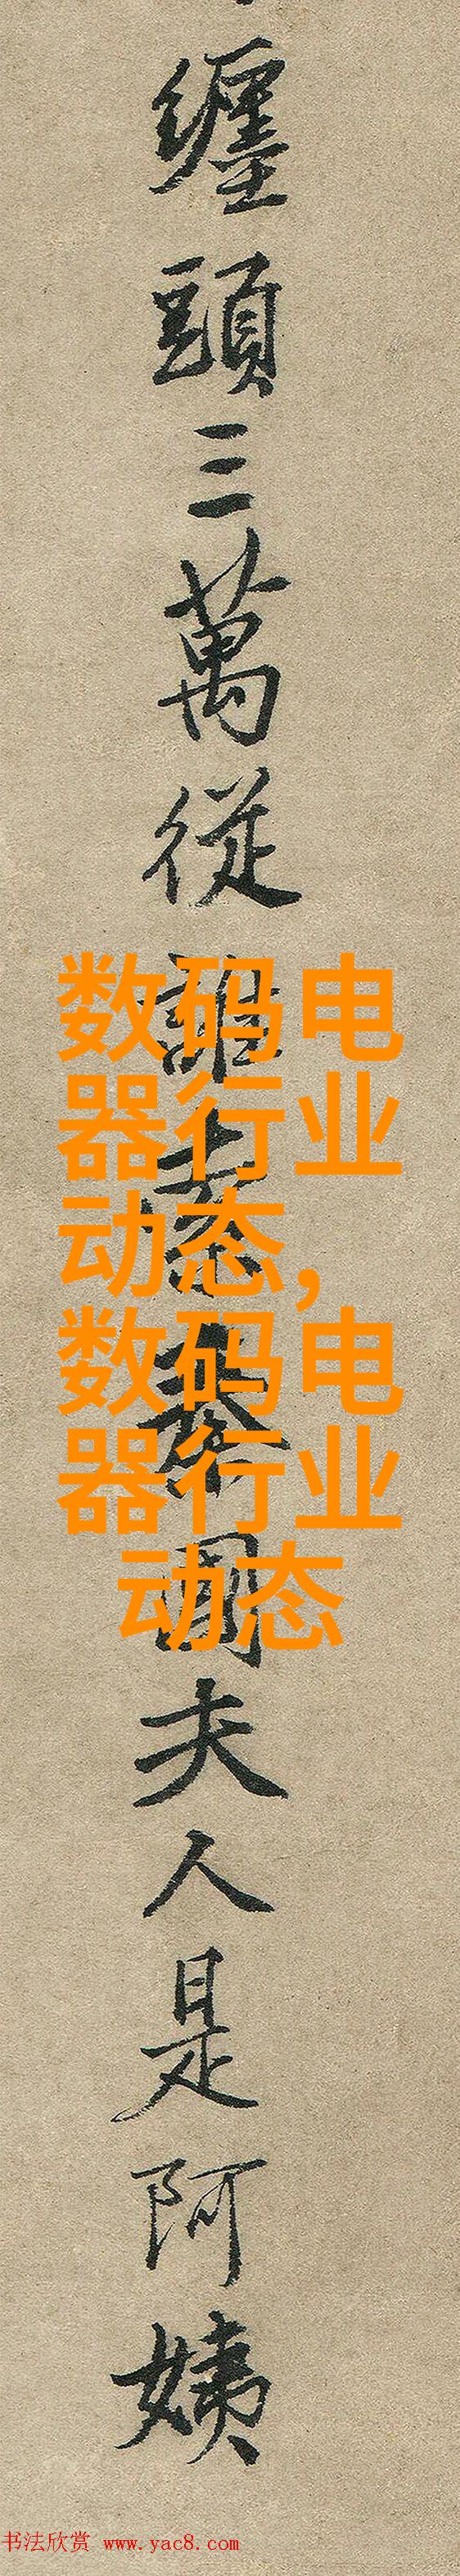 纏頭三萬從誰索秦國夫人是阿姨
数码电
器行业
动态,
数码电
器行业
动态
书法欣赏 www.yac8.com